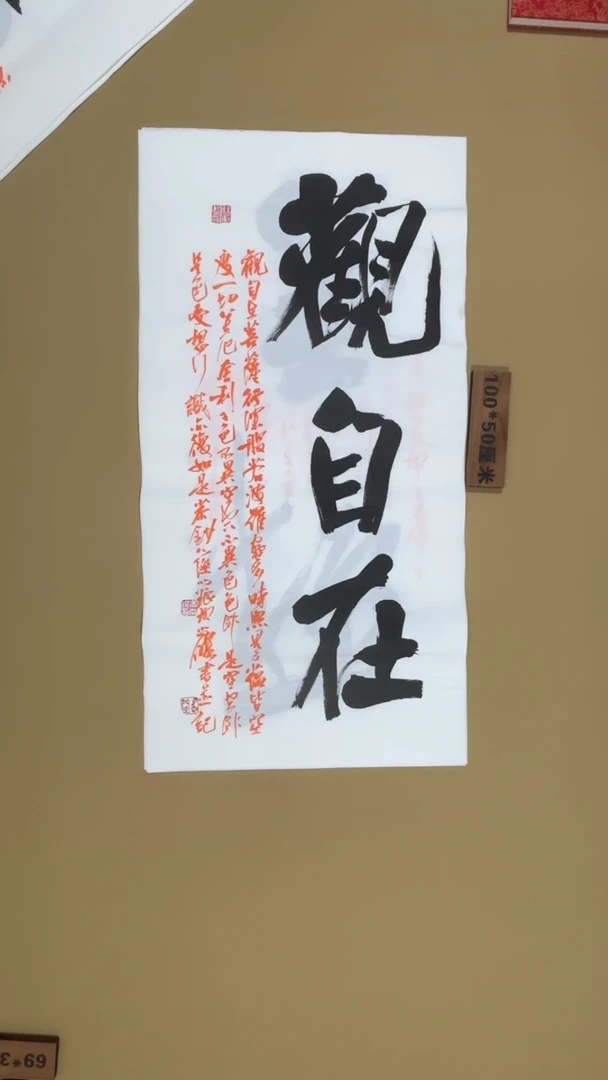 觀自在
觀自在菩薩行深般若波羅蜜多時照見五蘊皆空
度一切苦厄舍利子色不異空空不異色色即是空空即
是色受想行識亦復如是
書並記
100*50厘米
69*3